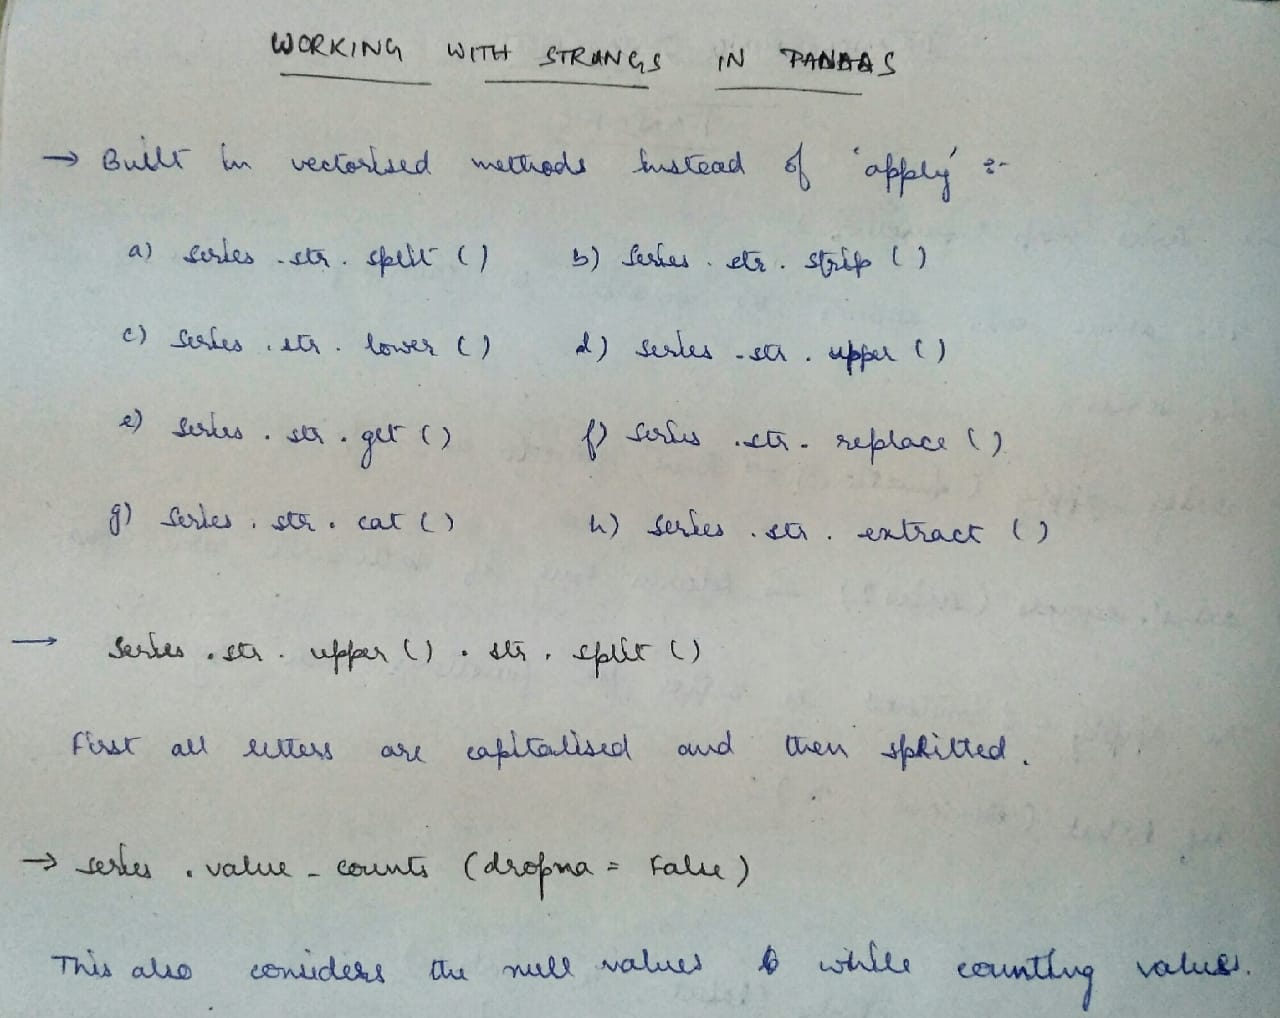 WORKING WITH STRINGS IN PANDAS
→ Built in vectorised methods instead of 'apply' :-
a) series.str.split() b) series.str.strip()
c) series.str.lower() d) series.str.upper()
e) series.str.get() f) series.str.replace()
g) series.str.cat() h) series.str.extract()
→ series.str.upper().str.split()
First all letters are capitalised and then splitted.
→ series.value_counts (dropna = False)
This also considers the null values while counting values.